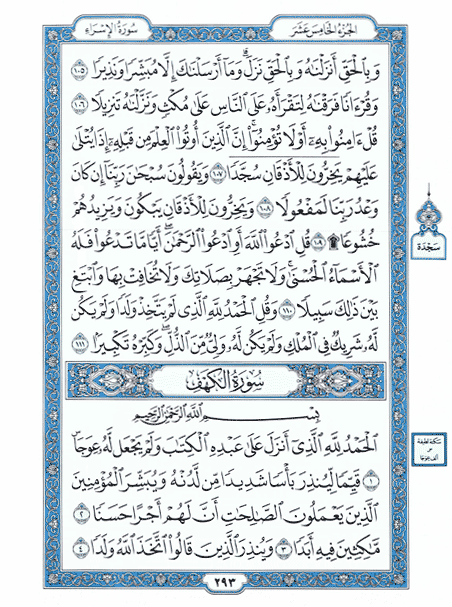 سُورَةُ الإِسْرَاءِ
الجُزْءُ الخَامِسَ عَشَرَ
وَبِٱلْحَقِّ أَنزَلْنَٰهُ وَبِٱلْحَقِّ نَزَلَ ۗ وَمَآ أَرْسَلْنَٰكَ إِلَّا مُبَشِّرًا وَنَذِيرًا ١٠٥
وَقُرْءَانًا فَرَقْنَٰهُ لِتَقْرَأَهُۥ عَلَى ٱلنَّاسِ عَلَىٰ مُكْثٍ وَنَزَّلْنَٰهُ تَنزِيلًا ١٠٦
قُلْ ءَامِنُوا۟ بِهِۦٓ أَوْ لَا تُؤْمِنُوٓا۟ ۚ إِنَّ ٱلَّذِينَ أُوتُوا۟ ٱلْعِلْمَ مِن قَبْلِهِۦٓ إِذَا يُتْلَىٰ
عَلَيْهِمْ يَخِرُّونَ لِلْأَذْقَانِ سُجَّدًا ١٠٧ وَيَقُولُونَ سُبْحَٰنَ رَبِّنَآ إِن كَانَ
وَعْدُ رَبِّنَا لَمَفْعُولًا ١٠٨ وَيَخِرُّونَ لِلْأَذْقَانِ يَبْكُونَ وَيَزِيدُهُمْ
خُشُوعًا ۩ ١٠٩ قُلِ ٱدْعُوا۟ ٱللَّهَ أَوِ ٱدْعُوا۟ ٱلرَّحْمَٰنَ ۖ أَيًّا مَّا تَدْعُوا۟ فَلَهُ
ٱلْأَسْمَآءُ ٱلْحُسْنَىٰ ۚ وَلَا تَجْهَرْ بِصَلَاتِكَ وَلَا تُخَافِتْ بِهَا وَٱبْتَغِ
بَيْنَ ذَٰلِكَ سَبِيلًا ١١٠ وَقُلِ ٱلْحَمْدُ لِلَّهِ ٱلَّذِى لَمْ يَتَّخِذْ وَلَدًا وَلَمْ يَكُن
لَّهُۥ شَرِيكٌ فِى ٱلْمُلْكِ وَلَمْ يَكُن لَّهُۥ وَلِىٌّ مِّنَ ٱلذُّلِّ ۖ وَكَبِّرْهُ تَكْبِيرًۢا ١١١
سُورَةُ الكَهْفِ
بِسْمِ ٱللَّهِ ٱلرَّحْمَٰنِ ٱلرَّحِيمِ
ٱلْحَمْدُ لِلَّهِ ٱلَّذِىٓ أَنزَلَ عَلَىٰ عَبْدِهِ ٱلْكِتَٰبَ وَلَمْ يَجْعَل لَّهُۥ عِوَجَا ۜ
١ قَيِّمًا لِّيُنذِرَ بَأْسًا شَدِيدًا مِّن لَّدُنْهُ وَيُبَشِّرَ ٱلْمُؤْمِنِينَ
ٱلَّذِينَ يَعْمَلُونَ ٱلصَّٰلِحَٰتِ أَنَّ لَهُمْ أَجْرًا حَسَنًا ٢
مَّٰكِثِينَ فِيهِ أَبَدًا ٣ وَيُنذِرَ ٱلَّذِينَ قَالُوا۟ ٱتَّخَذَ ٱللَّهُ وَلَدًا ٤
٢٩٣
سَجْدَة
سكتة لطيفة
على
ألف عوجا